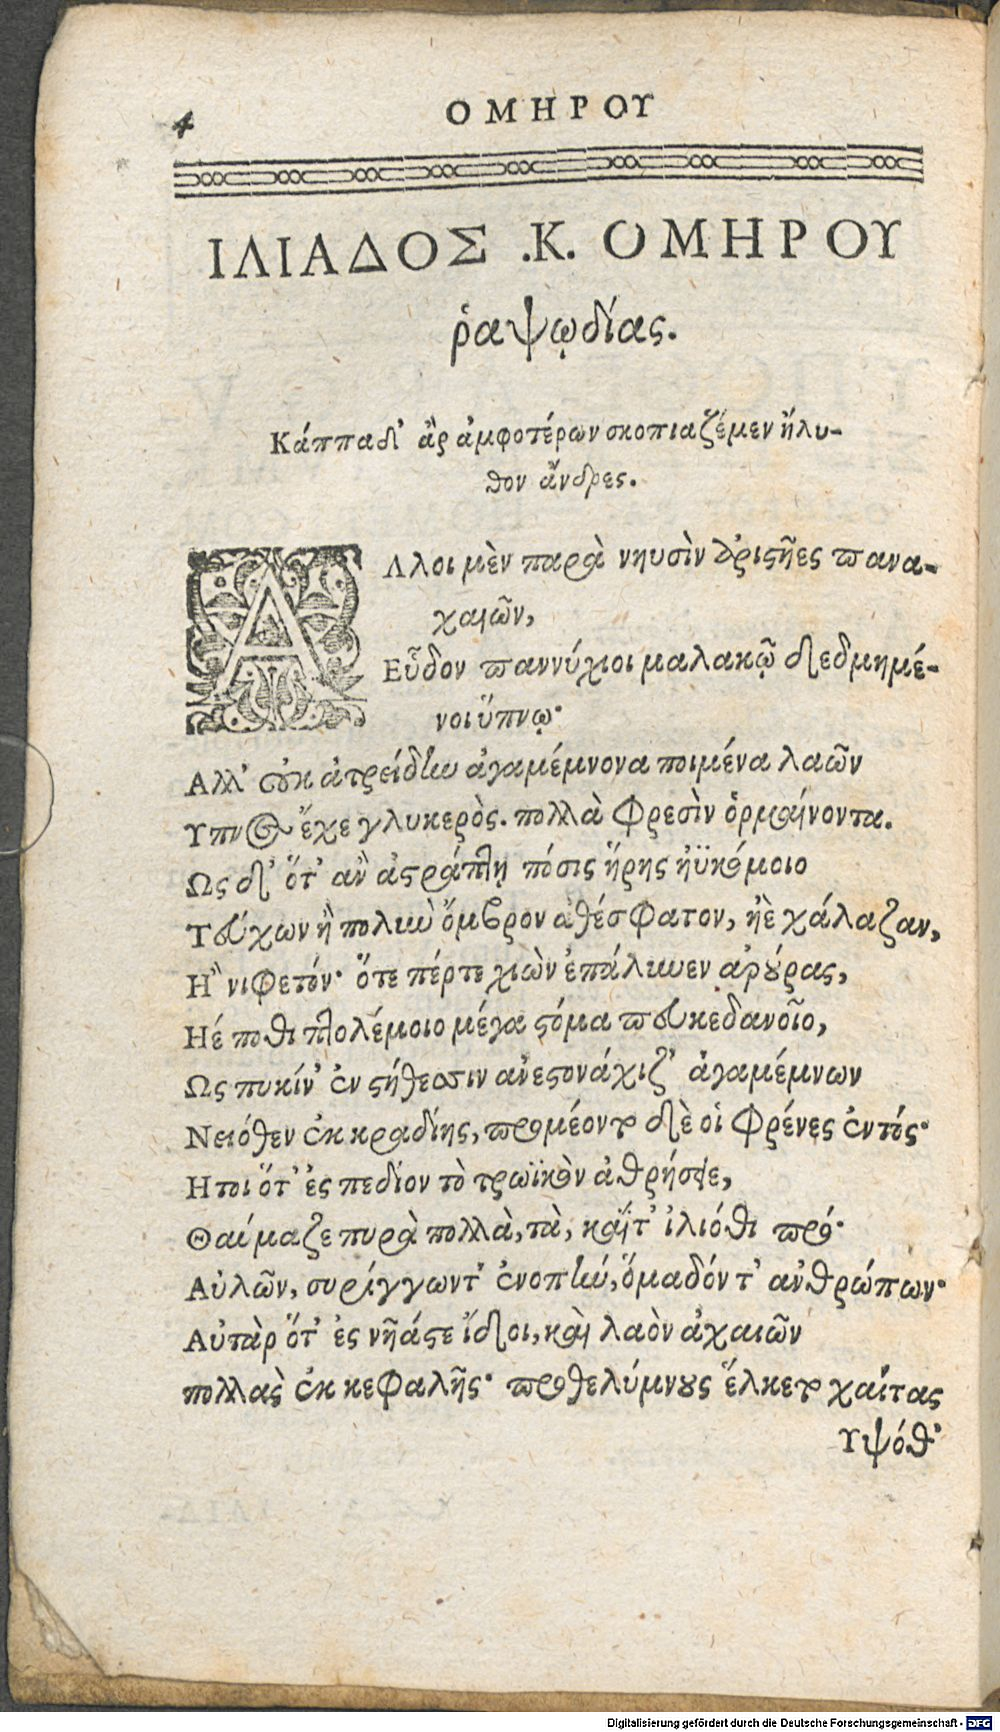 4
ΟΜΗΡΟΥ
ΙΛΙΑΔΟΣ .Κ. ΟΜΗΡΟΥ
ῥαψῳδίας.
Κάππαδ' ἂρ ἀμφοτέρων σκοπιαζέμεν ἤλυ-
θον ἄνδρες.
ΑΛλοι μὲν παρὰ νηυσὶν ἀριστῆες πανα-
χαιῶν,
Εὗδον παννύχιοι μαλακῷ δεδμημέ-
νοι ὕπνῳ·
Αλλ' οὐκ ἀτρείδην ἀγαμέμνονα ποιμένα λαῶν
Υπνος ἔχε γλυκερὸς. πολλὰ φρεσὶν ὁρμαίνοντα.
Ως δ' ὅτ' ἂν ἀστράπτῃ πόσις ἥρης ἠϋκόμοιο
Τεύχων ἢ πολιὺ ὄμβρον ἀθέσφατον, ἠὲ χάλαζαν,
Η νιφετόν· ὅτε πέρτε χιὼν ἐπάλιυεν ἀρούρας,
Ηέ ποθι πτολέμοιο μέγα στόμα πευκεδανοῖο,
Ως πυκίν' ἐν στήθεσσιν ἀνεστονάχιζ' ἀγαμέμνων
Νειόθεν ἐκ κραδίης, τρομέοντο δέ οἱ φρένες ἐντός·
Ητοι ὅτ' ἐς πεδίον τὸ τρωϊκὸν ἀθρήσειε,
Θαύμαζε πυρὰ πολλὰ, τὰ, καίτ' ἰλιόθι πρό·
Αὐλῶν, συρίγγωντ' ἐνοπήν, ὅμαδόν τ' ἀνθρώπων·
Αὐτὰρ ὅτ' ἐς νῆάςτε ἴδοι, καὶ λαὸν ἀχαιῶν
πολλὰς ἐκ κεφαλῆς· προθελύμνους ἕλκετο χαίτας
Υψόθ'
Digitalisierung gefördert durch die Deutsche Forschungsgemeinschaft - DFG